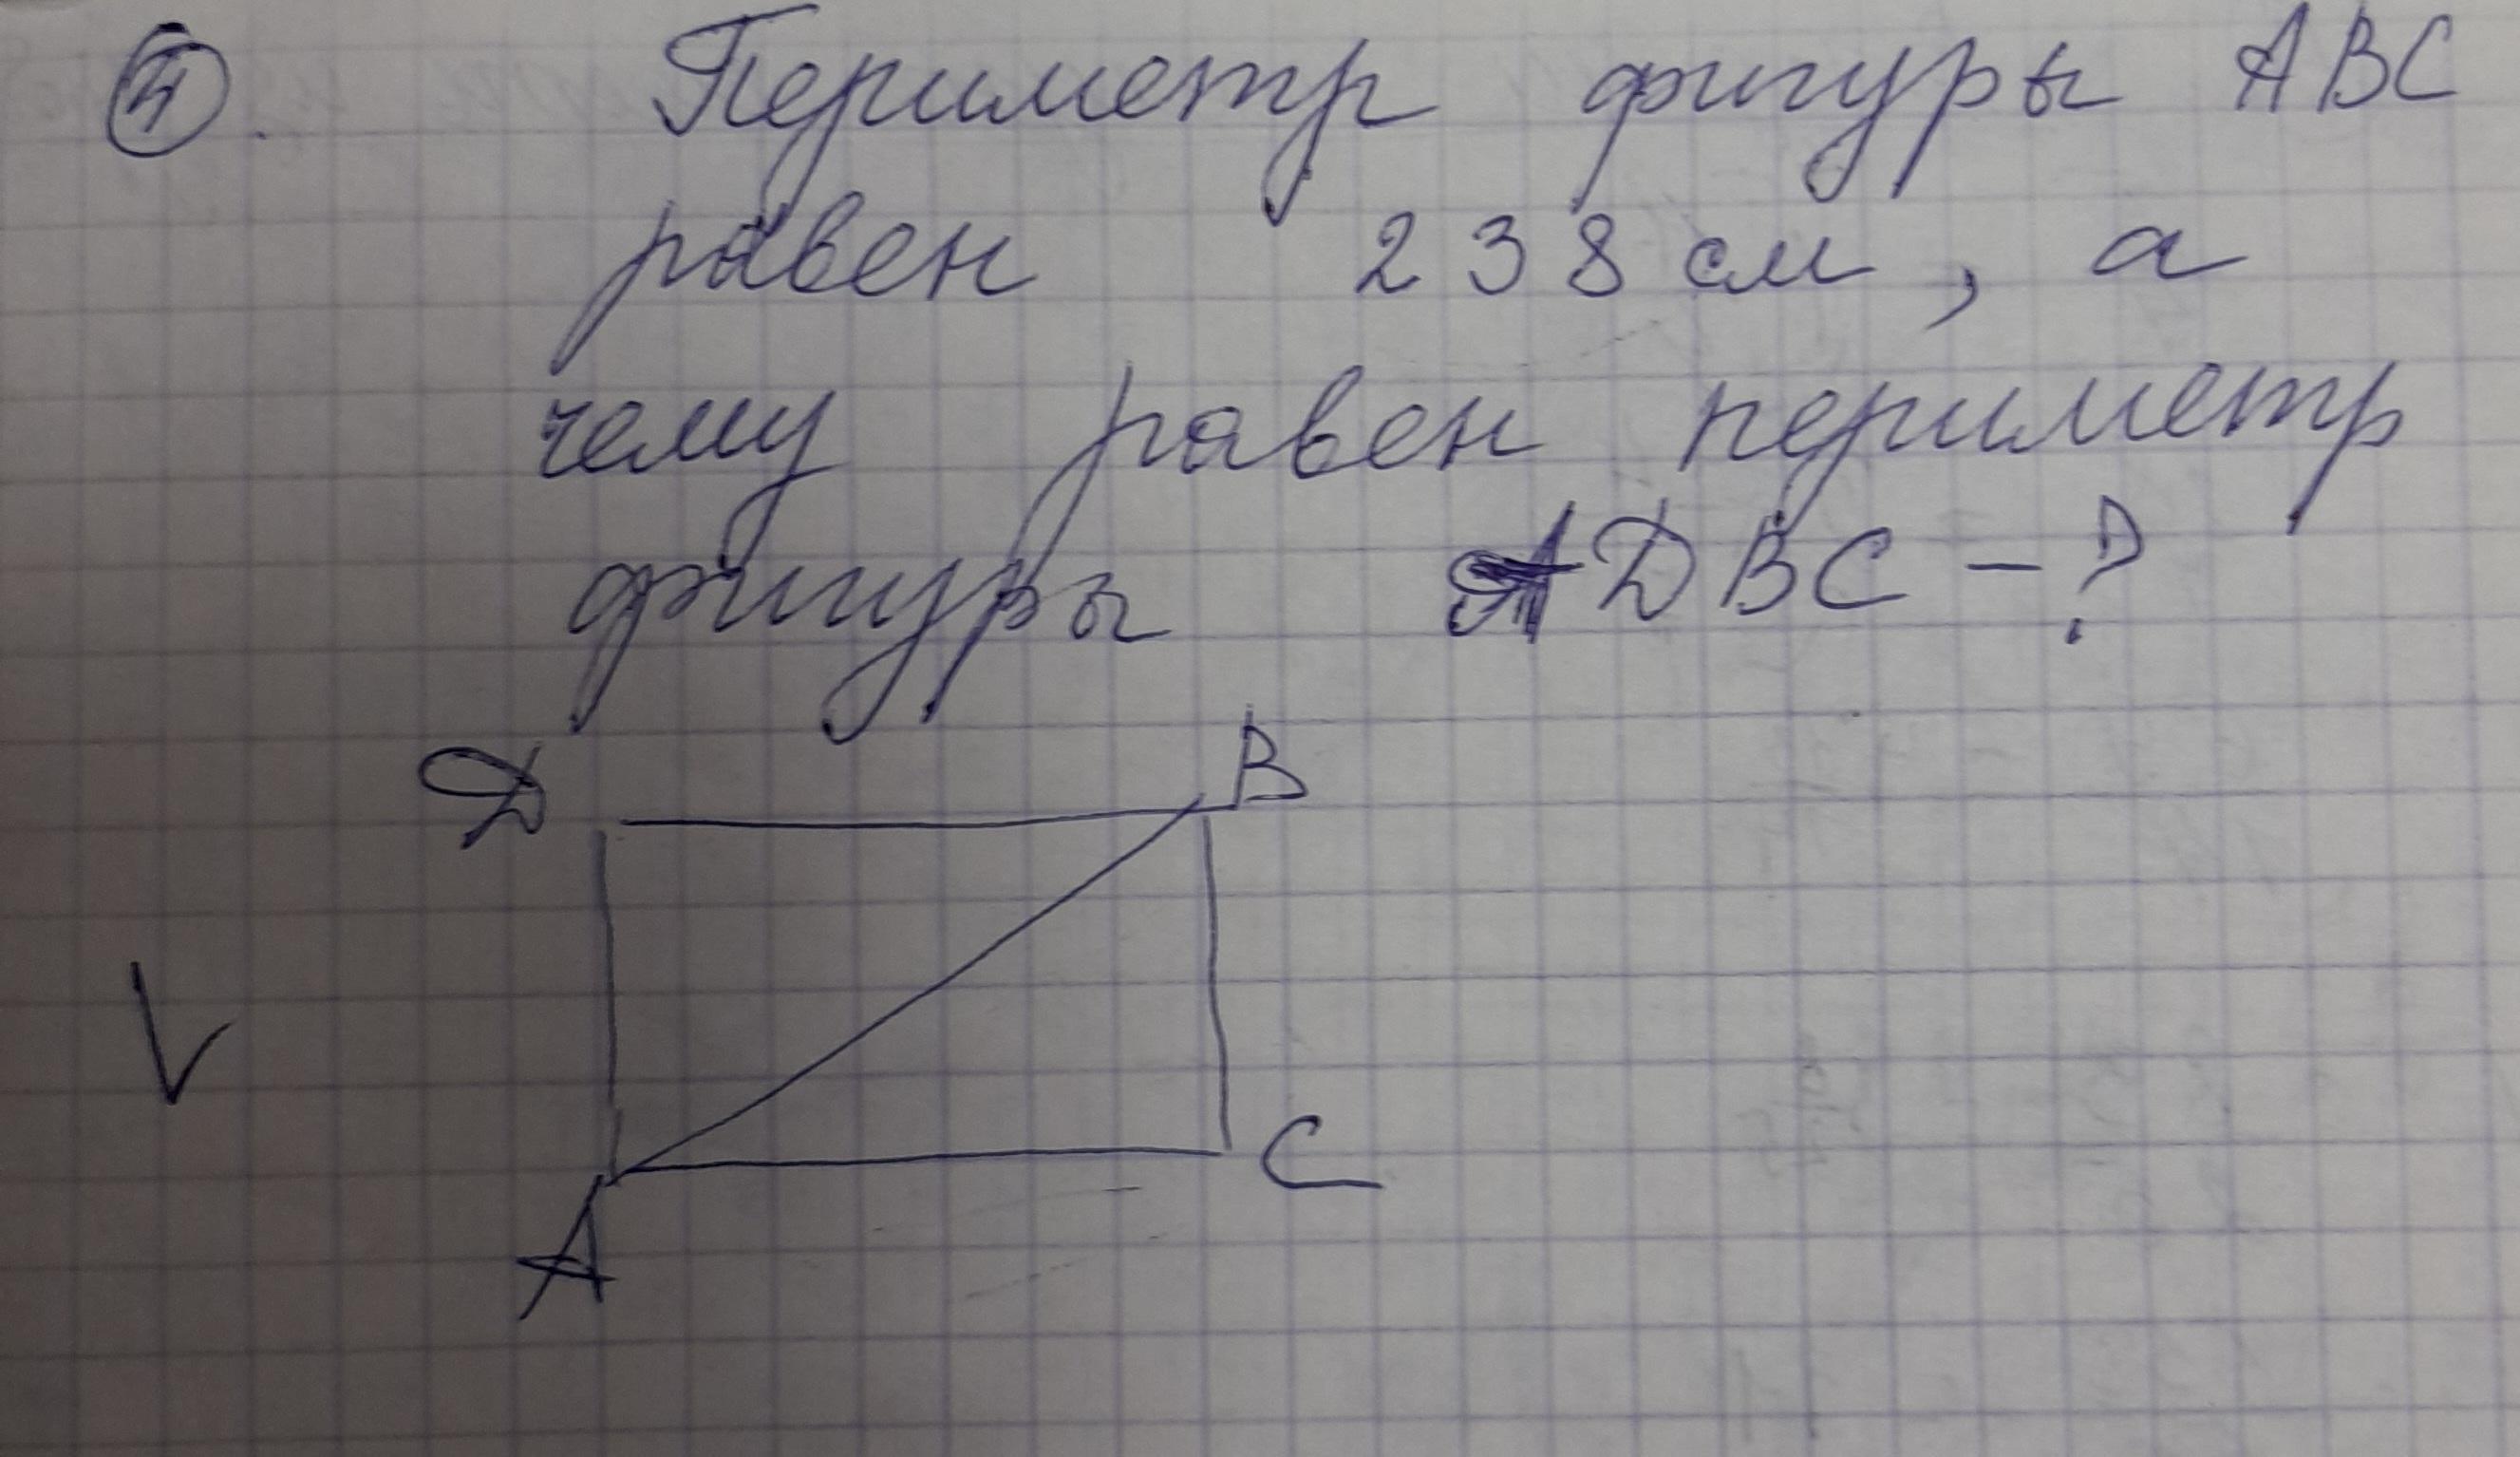 4.
Периметр фигуры ABC
равен 238 см, а
чему равен периметр
фигуры АДВС - ?
Д B
A C